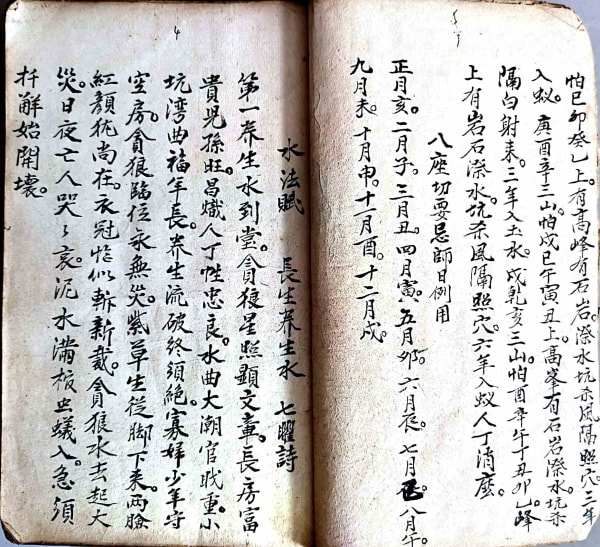 怕巳卯癸乙上有高峰有石岩漈水坑杀風隔照穴三年
入蚁庚酉辛三山怕戌巳午寅丑上高峯有石岩漈水坑杀
隔向射来三年入土水戌乾亥三山怕酉辛午丁丑卯乙峰
上有岩石漈水坑杀風隔照穴六年入蚁人丁消磨
八座切要忌師日例用
正月亥二月子三月丑四月寅五月卯六月辰七月巳八月午
九月未十月申十一月酉十二月戍
水法賦 長生养生水 七曜詩
第一养生水到堂貪狼星照顕文章長房富
貴児孫旺昌熾人丁性忠良水曲大潮官戝重小
坑湾曲福年長养生流破終須絶寡婦少年守
空房貪狼臨位永無災紫草生從脚下来两臉
紅顏犹尚在衣冠恰似斬新裁貪狼水去起大
災日夜亡人哭々哀泥水満板虫蟻入急須
扦觧始開壞
4
5